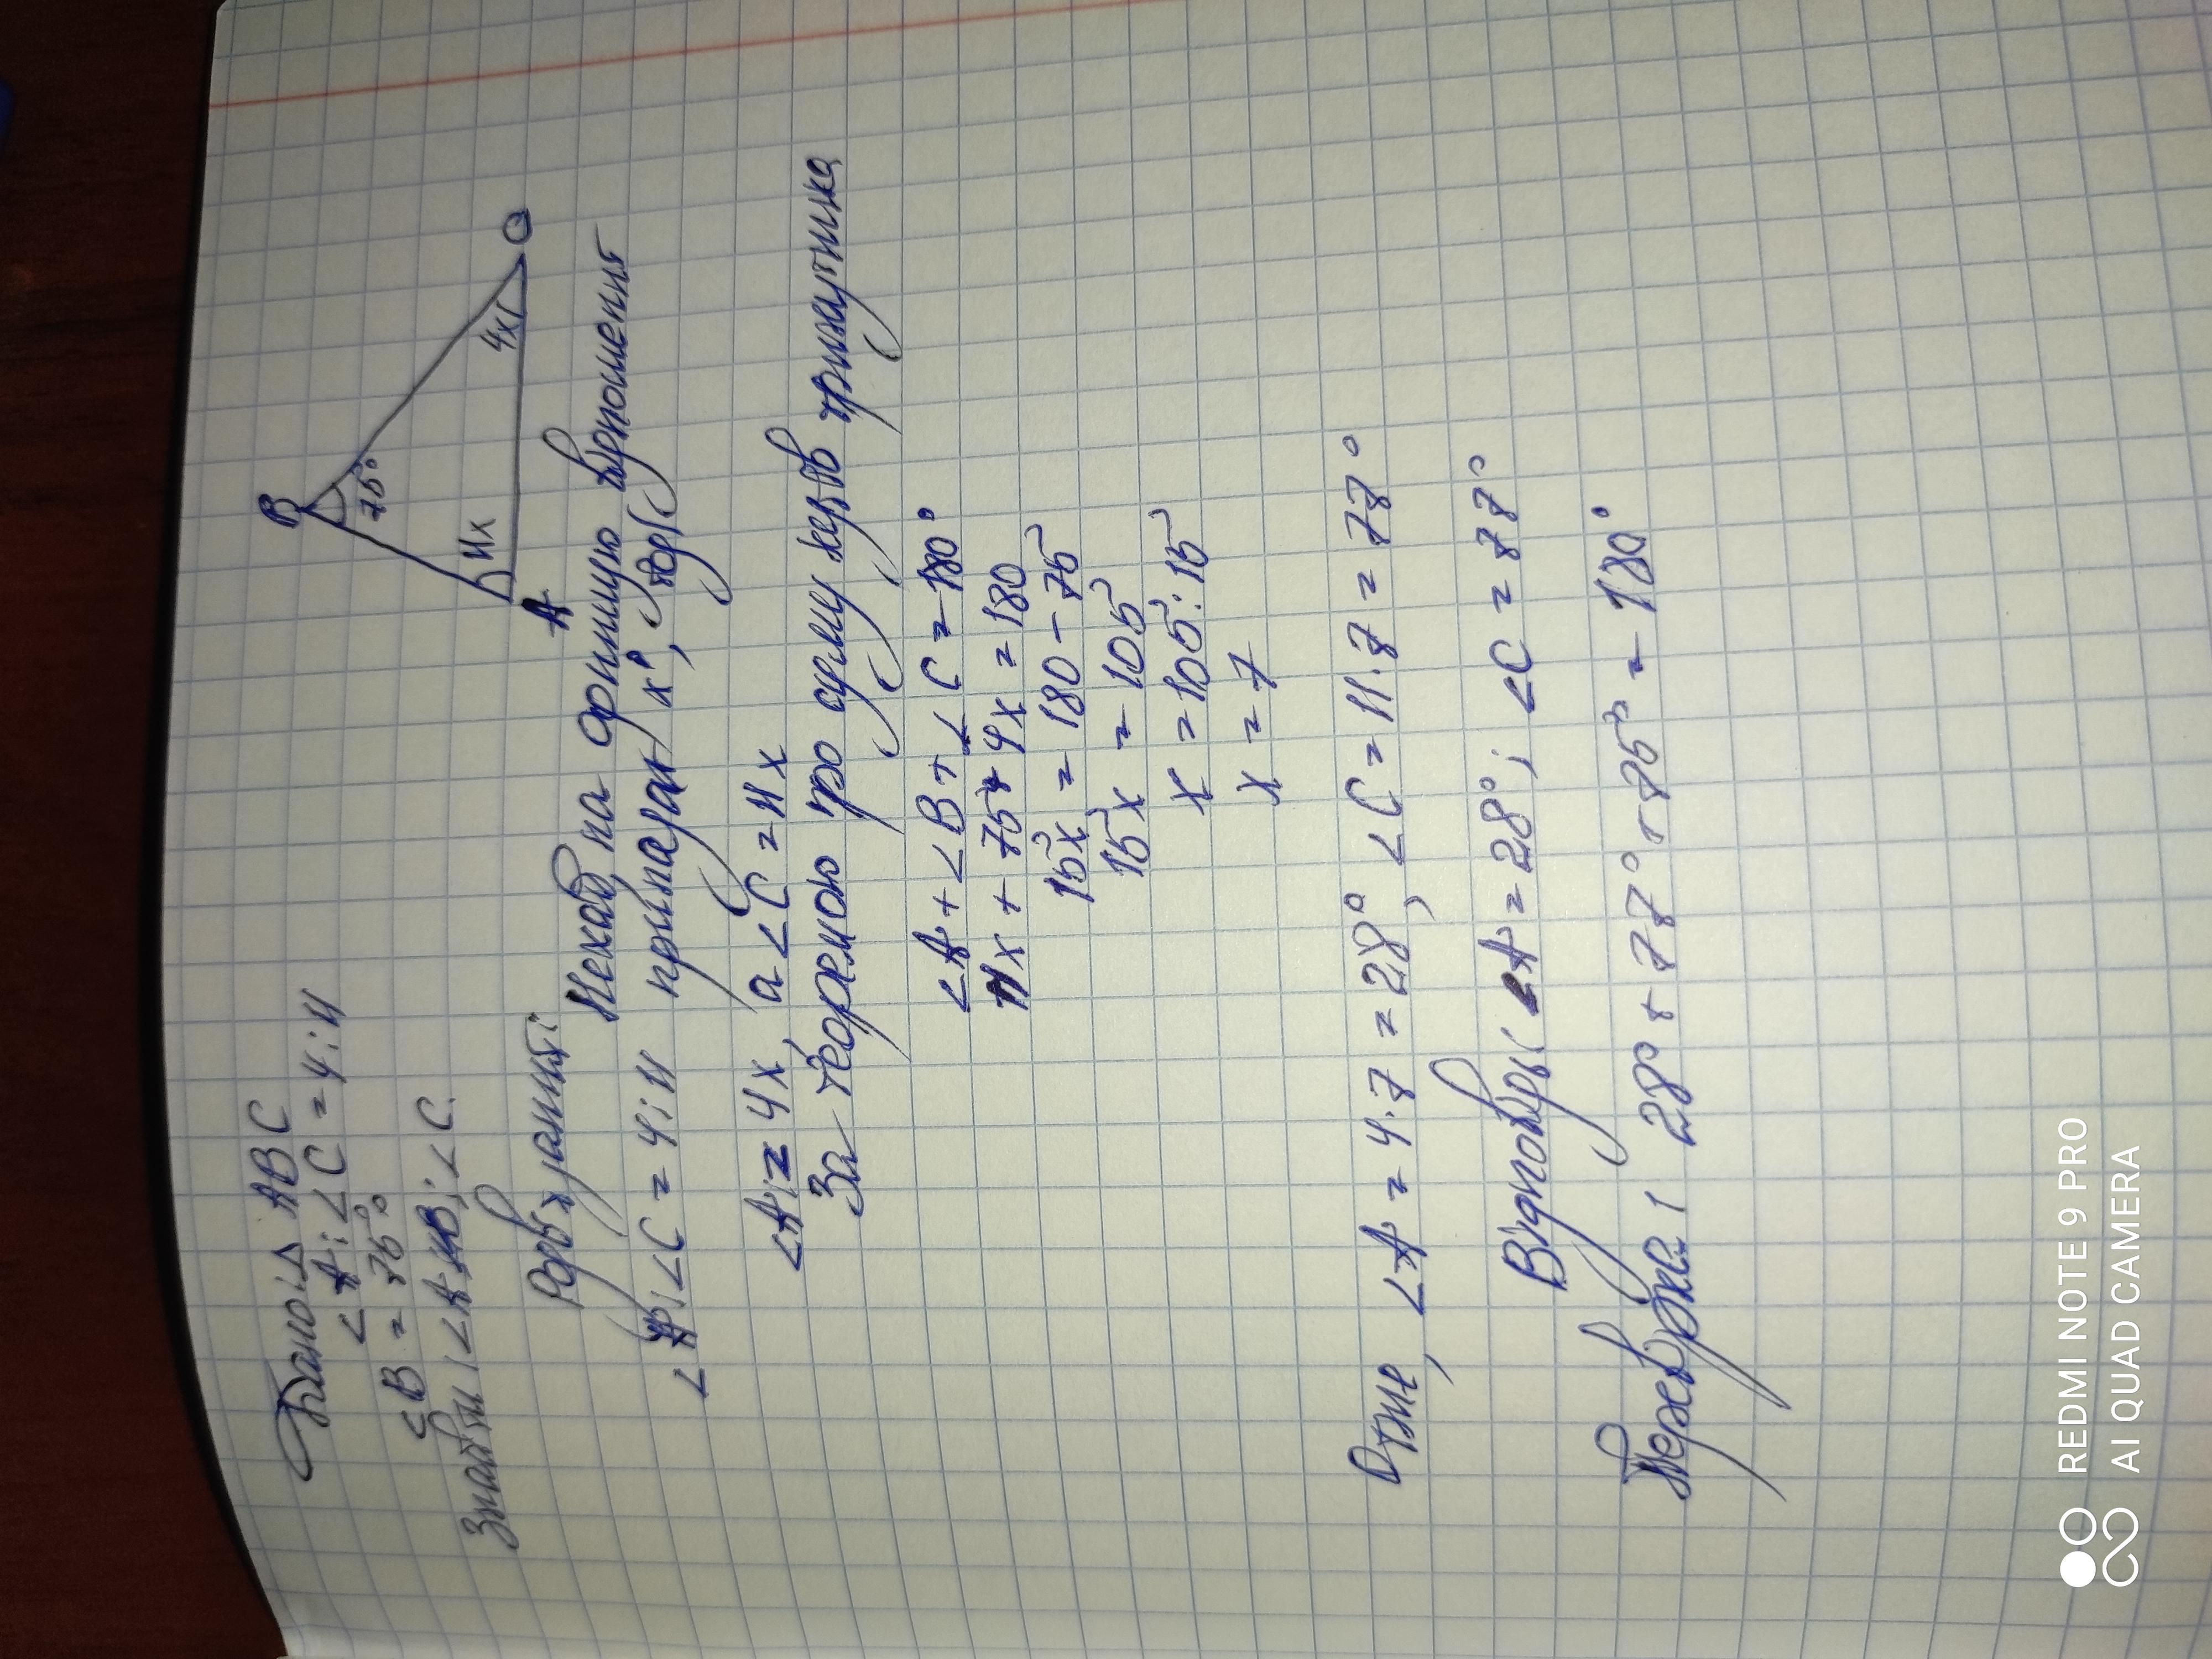 Дано: △ ABC
∠A : ∠C = 4 : 11
∠B = 75°
Знайти: ∠A ; ∠C.
B
75°
11x
4x
A
C
Розв'язання:
Нехай на одиницю відношення
∠A : ∠C = 4 : 11 припадає x°, тоді
∠A = 4x, а ∠C = 11x
За теоремою про суму кутів трикутника
∠A + ∠B + ∠C = 180°
11x + 75 + 4x = 180
15x = 180 - 75
15x = 105
x = 105 : 15
x = 7
Отже, ∠A = 4·7 = 28°, ∠C = 11·7 = 77°
Відповідь: ∠A = 28°; ∠C = 77°
Перевірка: 28° + 77° + 75° = 180°
REDMI NOTE 9 PRO
AI QUAD CAMERA